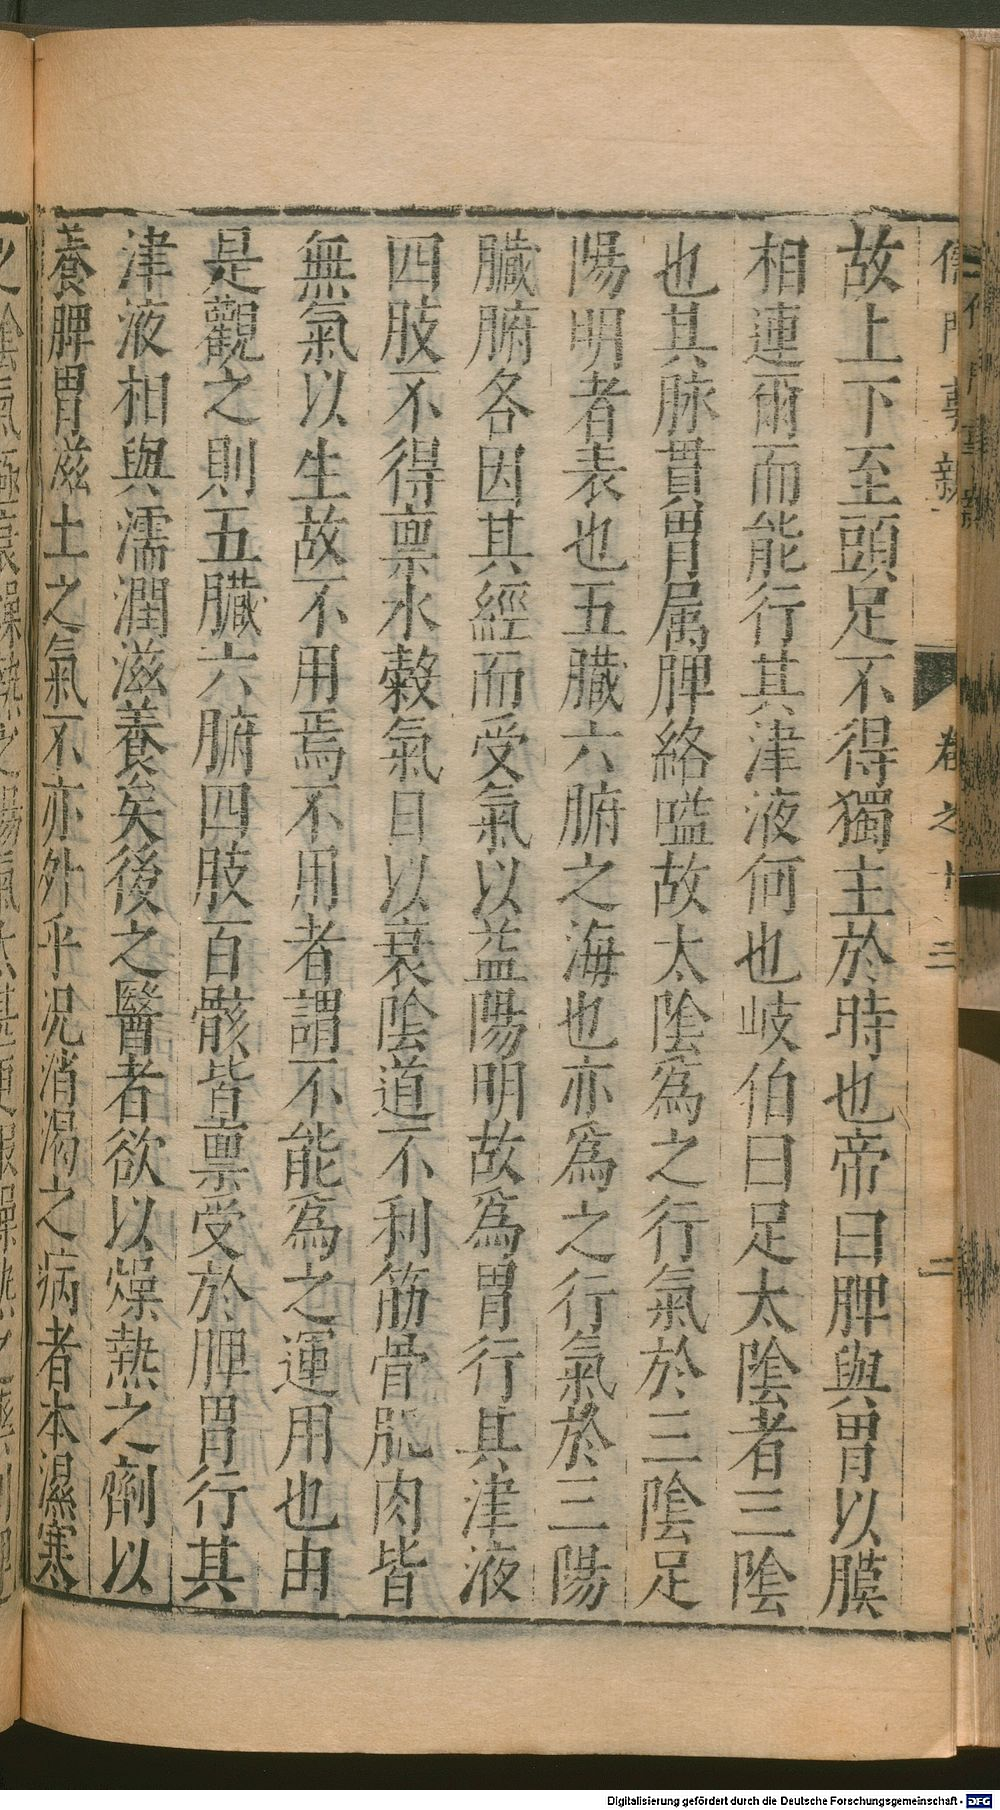 儒門事親 卷之十三 二
故上下至頭足不得獨主於時也帝曰脾與胃以膜
相連爾而能行其津液何也岐伯曰足太陰者三陰
也其脉貫胃属脾絡嗌故太陰爲之行氣於三陰足
陽明者表也五臟六腑之海也亦爲之行氣於三陽
臟腑各因其經而受氣以益陽明故爲胃行其津液
四肢不得禀水穀氣日以衰陰道不利筋骨肌肉皆
無氣以生故不用焉不用者謂不能爲之運用也由
是觀之則五臟六腑四肢百骸皆禀受於脾胃行其
津液相與濡潤滋養矣後之醫者欲以燥熱之劑以
養脾胃滋土之氣不亦外乎况消渴之病者本濕寒
Digitalisierung gefördert durch die Deutsche Forschungsgemeinschaft - DFG